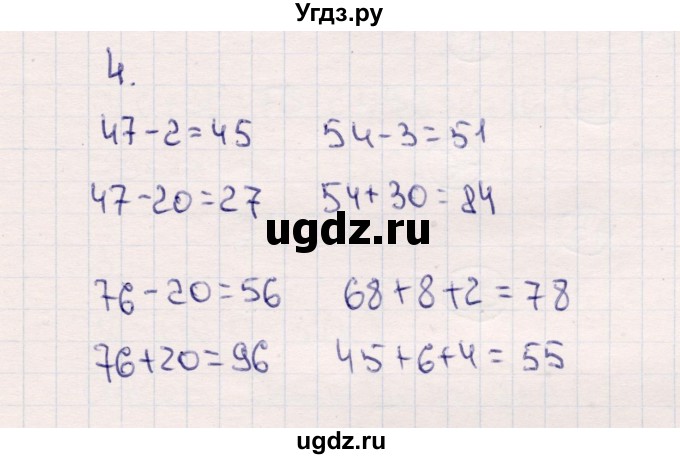 Угдз.ру
4.
47-2=45 54-3=51
47-20=27 54+30=84
ugdz.ru
76-20=56 68+8+2=78
76+20=96 45+6+4=55
ugdz.ru